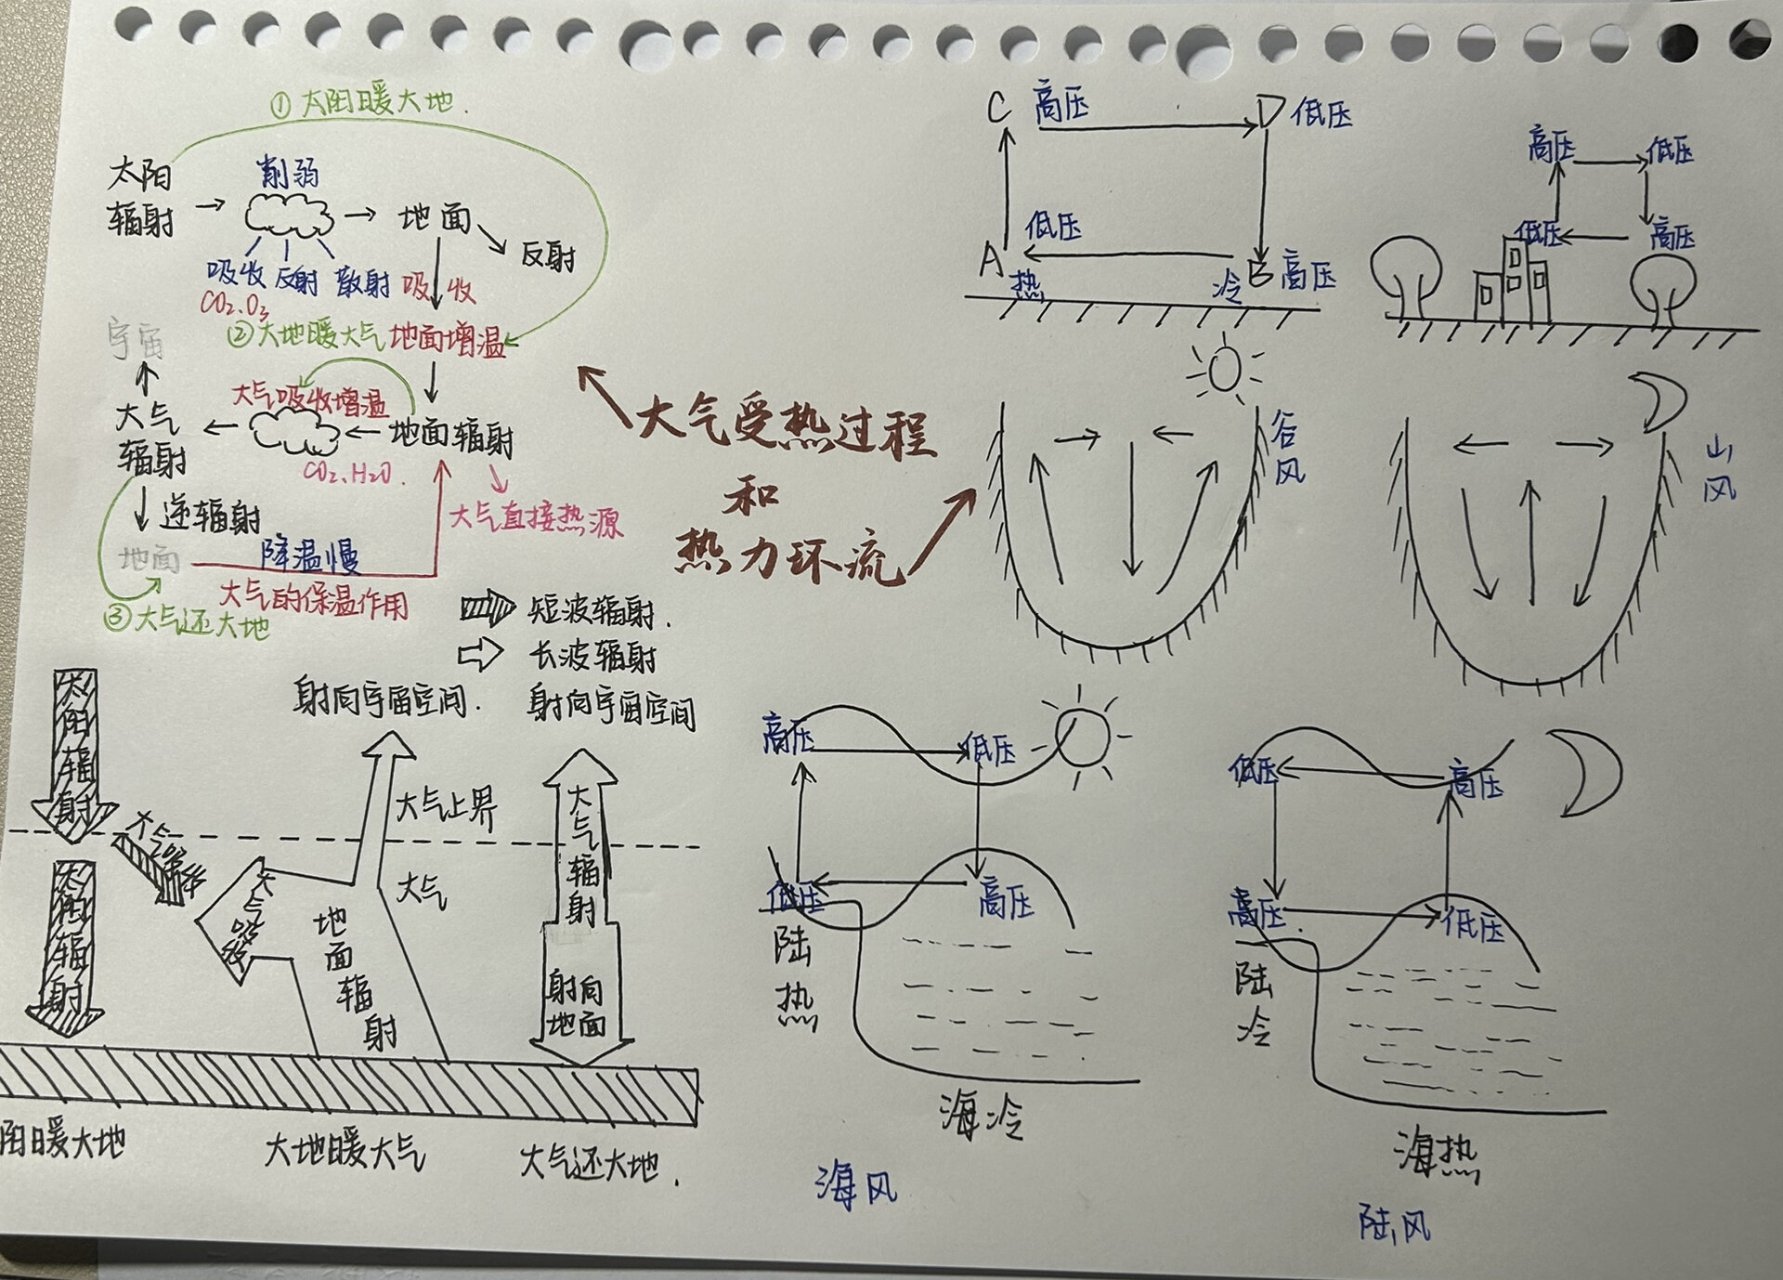 ①太阳暖大地.
太阳
辐射
削弱
地面
反射
吸收 反射 散射
吸收
CO₂.O₃
②大地暖大气
地面增温
宇宙
大气吸收增温
大气
辐射
地面辐射
CO₂.H₂O.
大气直接热源
逆辐射
地面
降温慢
大气的保温作用
③大气还大地
短波辐射.
长波辐射
大气受热过程
和
热力环流
C 高压
D 低压
低压
A 热
冷 B 高压
高压 低压
低压 高压
谷风
山风
射向宇宙空间.
射向宇宙空间
太阳辐射
大气吸收
太阳辐射
大气上界
大气
大气吸收
地面辐射
大气辐射
射向
地面
阳暖大地
大地暖大气
大气还大地.
高压 低压
低压 高压
陆热
海冷
海风
低压 高压
高压 低压
陆冷
海热
陆风